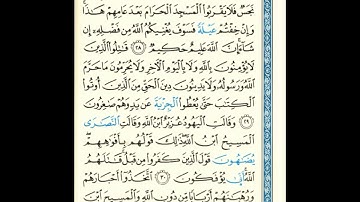 نَجَسٌ فَلَا يَقْرَبُوا۟ ٱلْمَسْجِدَ ٱلْحَرَامَ بَعْدَ عَامِهِمْ هَٰذَا
وَإِنْ خِفْتُمْ عَيْلَةً فَسَوْفَ يُغْنِيكُمُ ٱللَّهُ مِن فَضْلِهِۦٓ إِن
شَآءَ إِنَّ ٱللَّهَ عَلِيمٌ حَكِيمٌ ٢٨ قَٰتِلُوا۟ ٱلَّذِينَ
لَا يُؤْمِنُونَ بِٱللَّهِ وَلَا بِٱلْيَوْمِ ٱلْءَاخِرِ وَلَا يُحَرِّمُونَ مَا حَرَّمَ
ٱللَّهُ وَرَسُولُهُۥ وَلَا يَدِينُونَ دِينَ ٱلْحَقِّ مِنَ ٱلَّذِينَ أُوتُوا۟
ٱلْكِتَٰبَ حَتَّىٰ يُعْطُوا۟ ٱلْجِزْيَةَ عَن يَدٍ وَهُمْ صَٰغِرُونَ
٢٩ وَقَالَتِ ٱلْيَهُودُ عُزَيْرٌ ٱبْنُ ٱللَّهِ وَقَالَتِ ٱلنَّصَٰرَى
ٱلْمَسِيحُ ٱبْنُ ٱللَّهِ ذَٰلِكَ قَوْلُهُم بِأَفْوَٰهِهِمْ
يُضَٰهِـُٔونَ قَوْلَ ٱلَّذِينَ كَفَرُوا۟ مِن قَبْلُ قَٰتَلَهُمُ
ٱللَّهُ أَنَّىٰ يُؤْفَكُونَ ٣٠ ٱتَّخَذُوٓا۟ أَحْبَارَهُمْ
وَرُهْبَٰنَهُمْ أَرْبَابًا مِّن دُونِ ٱللَّهِ وَٱلْمَسِيحَ ٱبْنَ